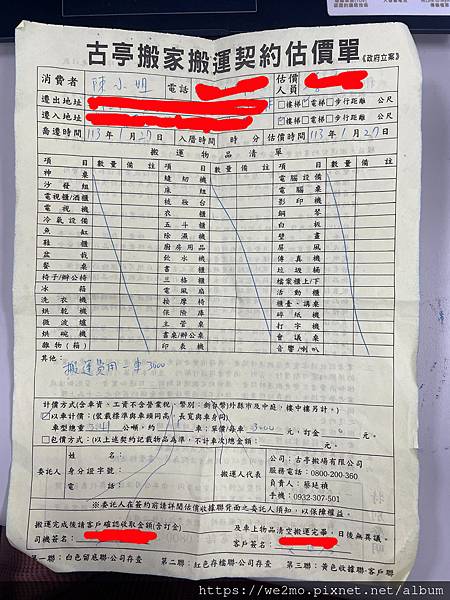 古亭搬家搬運契約估價單《政府立案》
消費者 陳小姐 電話 估價人員
遷出地址 □樓梯□電梯□步行距離 公尺
遷入地址 □樓梯□電梯□步行距離 公尺
喬遷時間 113年1月27日 入厝時間 時 分 估價時間 113年1月27日
搬運物品清單
項目 數量 備註 項目 數量 備註 項目 數量 備註
神桌 縫紉機 電腦設備
沙發組 床組 電腦桌
電視櫃/酒櫃 梳妝台 影印機
電視機 衣櫃 鋼琴
冷氣設備 五斗櫃 白板
魚缸 除濕機 壁畫
鞋櫃 廚房用品 屏風
盆栽 飲水機 傳真機
餐桌 書櫃 垃圾桶
椅子/辦公椅 三格櫃 檔案櫃上/下
冰箱 電風扇 活動櫃
洗衣機 按摩椅 櫃臺、講桌
烘乾機 保險庫 碎紙機
微波爐 主管桌 打字機
烘碗機 書桌/辦公桌 會議桌
雜物(箱) 印表機 音響/喇叭
其他:
搬運費用一車3000
計價方式(含車資、工資不含營業稅,幣別:新台幣)外縣市及中庭,樓中樓另計。)
☑以車計價:(裝載標準與車頭同高,長寬與車身同)
車型總重 公噸,約 車;單價/每車 3000 元,訂金 0 元。
□包價方式:(以上述契約記載物品為準,不計車次)總金額: 元。
委託人
姓名:
身分證字號:
電話:
搬運人代表
公司:古亭搬場有限公司
服務電話:0800-200-360
負責人:蔡廷禎
手機:0932-307-501
※委託人在簽約前請詳閱估價收據聯背面之委託人須知,以保障權益。
搬運完成後請客戶確認收取金額(含訂金) 及車上物品清空搬運完畢,日後無異議。
司機簽名: 客戶簽名:
第一聯:白色留底聯‧公司存查 第二聯:紅色存檔聯‧公司存查 第三聯:黃色收據聯‧客戶
https://we2mo.pixnet.net/album